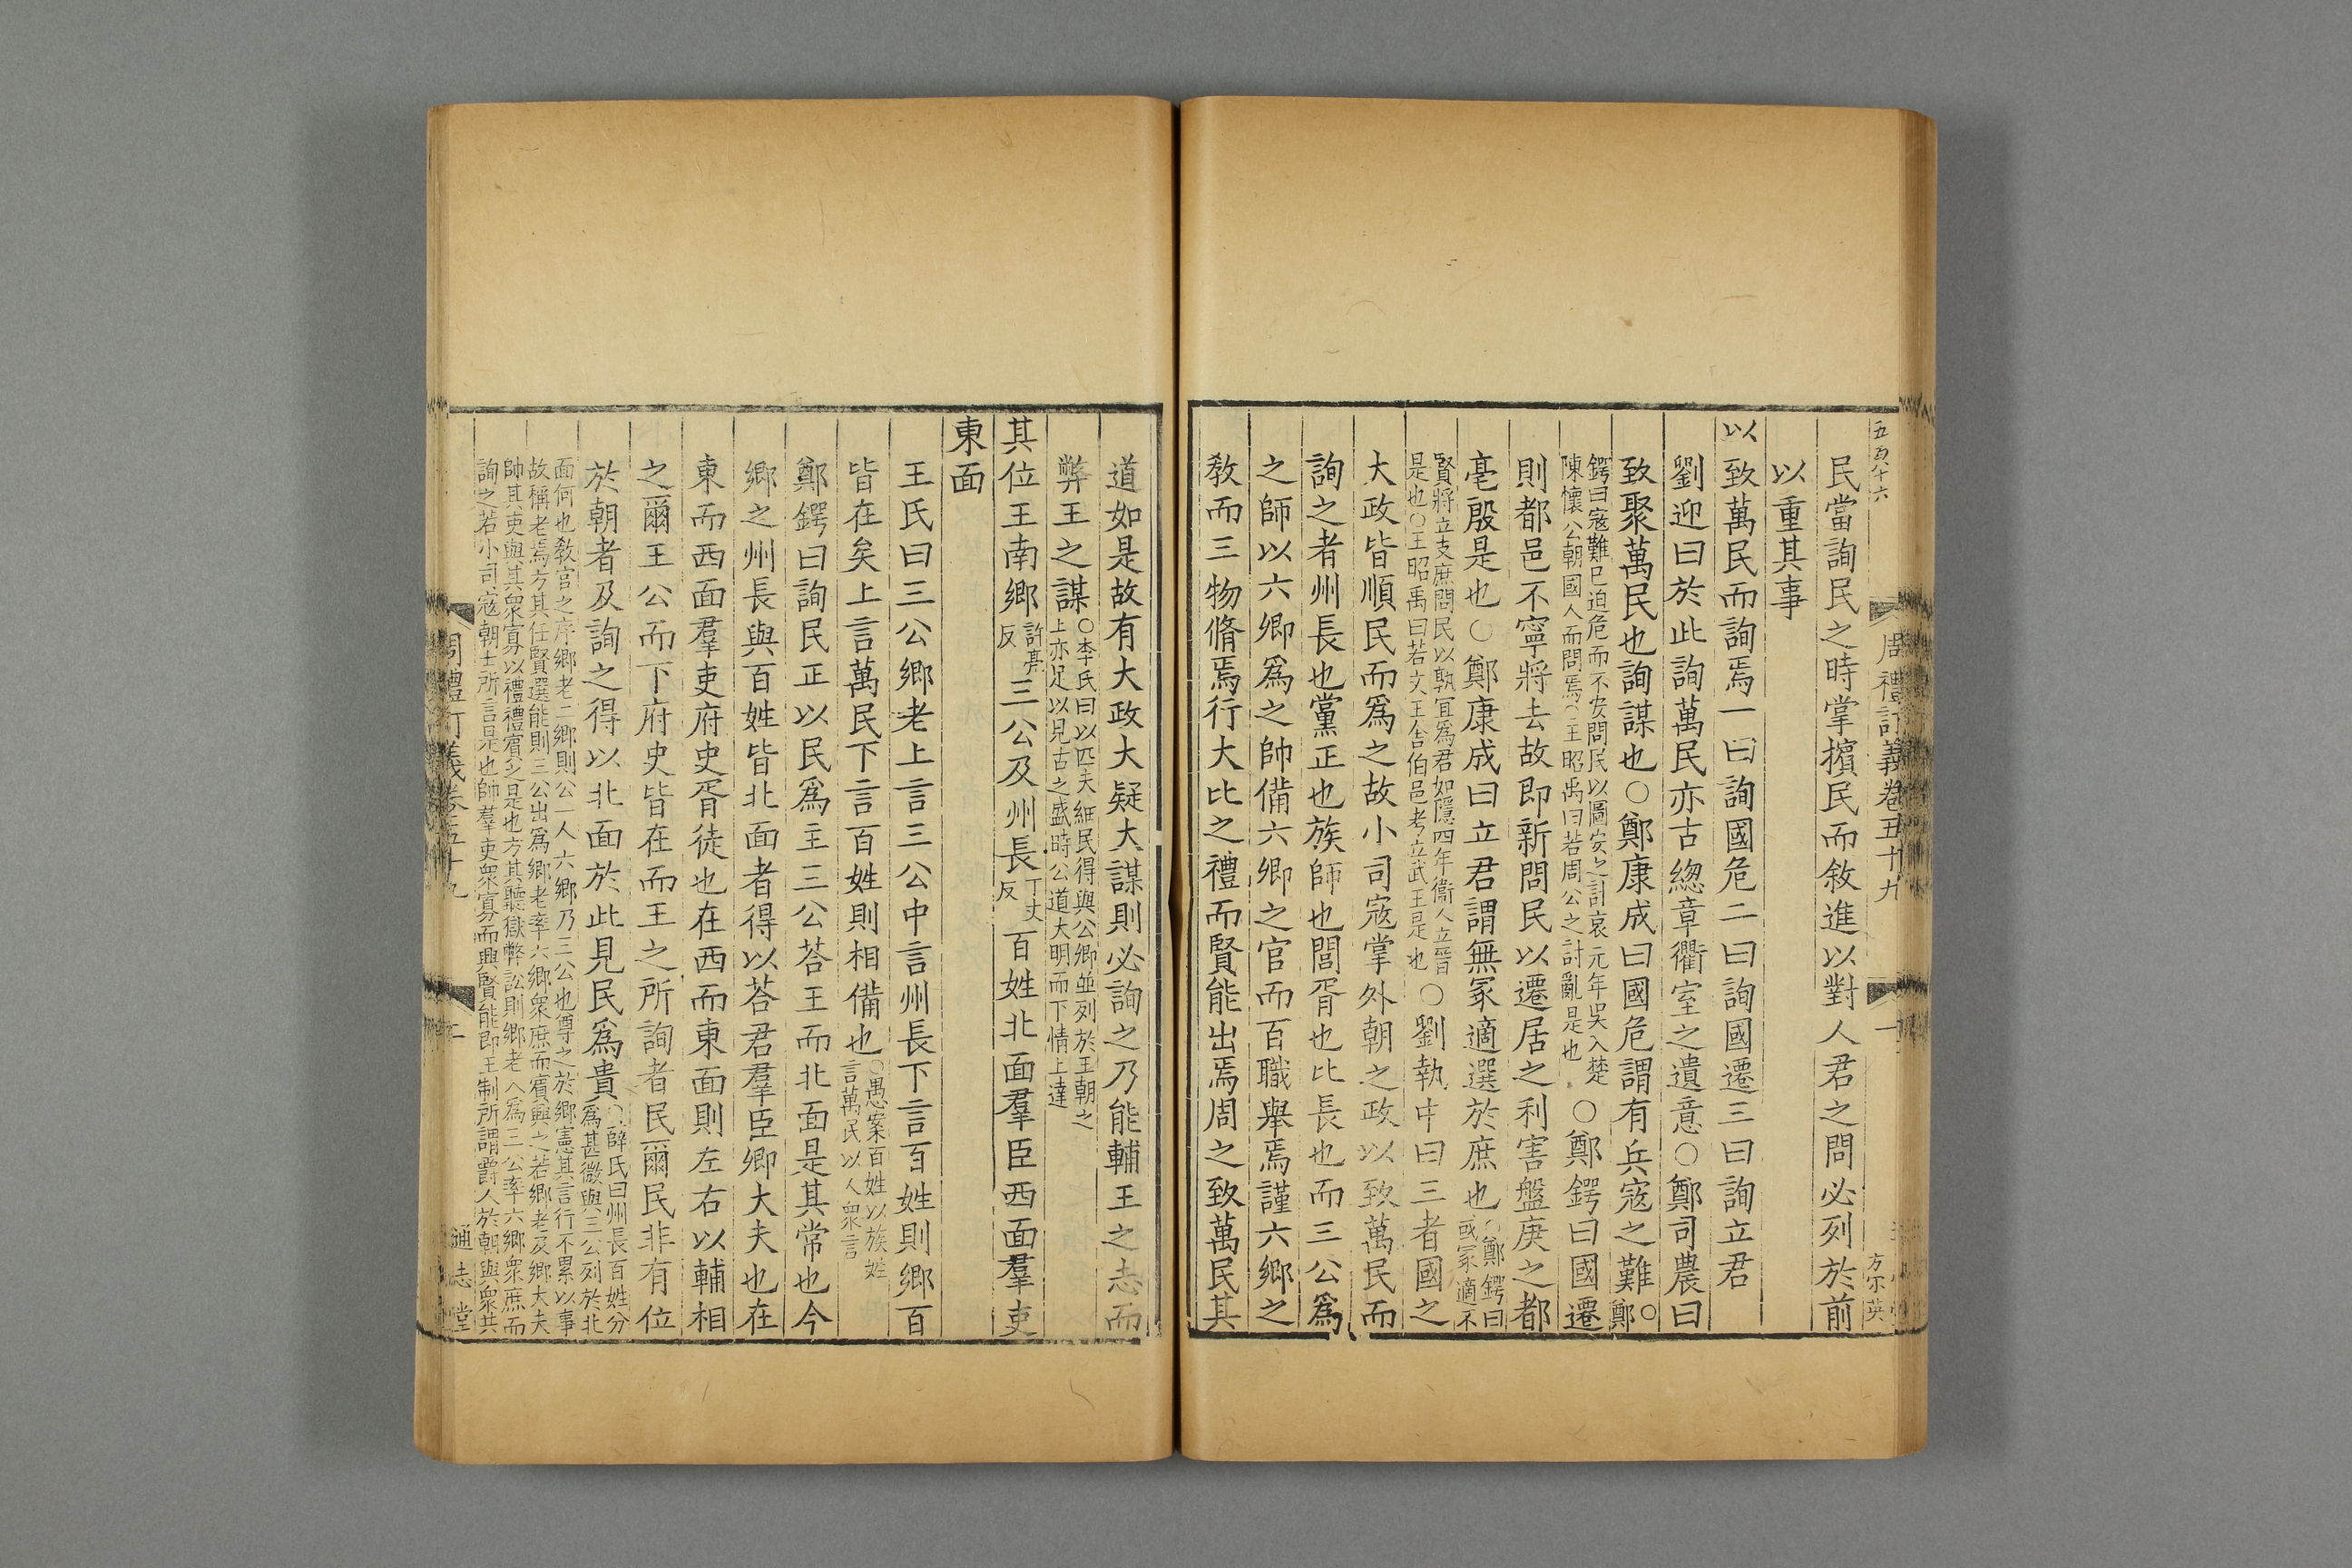 五百八十六
周禮訂義卷五十九
一
方尔英
民當詢民之時掌擯民而敘進以對人君之問必列於前
以重其事
以致萬民而詢焉一曰詢國危二曰詢國遷三曰詢立君
劉迎曰於此詢萬民亦古緫章衢室之遺意○鄭司農曰
致聚萬民也詢謀也○鄭康成曰國危謂有兵寇之難○鄭
鍔曰寇難已迫危而不安問民以圖安之計哀元年吳入楚
陳懷公朝國人而問焉○王昭禹曰若周公之討亂是也
○鄭鍔曰國遷
則都邑不寧將去故即新問民以遷居之利害盤庚之都
亳殷是也○鄭康成曰立君謂無冢適選於庶也○鄭鍔曰或冢適不
賢將立支庶問民以孰宜爲君如隱四年衞人立晉
是也○王昭禹曰若文王舍伯邑考立武王是也
○劉執中曰三者國之
大政皆順民而爲之故小司寇掌外朝之政以致萬民而
詢之者州長也黨正也族師也閭胥也比長也而三公爲
之師以六卿爲之帥備六卿之官而百職舉焉謹六鄉之
敎而三物脩焉行大比之禮而賢能出焉周之致萬民其
道如是故有大政大疑大謀則必詢之乃能輔王之志而
弊王之謀○李氏曰以匹夫細民得與公卿並列於王朝之
上亦足以見古之盛時公道大明而下情上達
其位王南鄉許亮反三公及州長丁丈反百姓北面羣臣西面羣吏
東面
王氏曰三公鄉老上言三公中言州長下言百姓則鄉百
皆在矣上言萬民下言百姓則相備也○愚案百姓以族姓言萬民以人衆言
鄭鍔曰詢民正以民爲主三公荅王而北面是其常也今
鄉之州長與百姓皆北面者得以荅君羣臣卿大夫也在
東而西面羣吏府史胥徒也在西而東面則左右以輔相
之爾王公而下府史皆在而王之所詢者民爾民非有位
於朝者及詢之得以北面於此見民爲貴○薛氏曰州長百姓分爲甚微與三公列於北
面何也敎官之序鄉老二鄉則公一人六鄉乃三公也尊之於鄉憲其言行不累以事
故稱老焉方其任賢選能則三公出爲鄉老率六鄉衆庶而賓興之若鄉老及鄉大夫
帥其吏與其衆寡以禮禮賓之是也方其聽獄弊訟則鄉老入爲三公率六鄉衆庶而
詢之若小司寇朝士所言是也帥羣吏衆寡而興賢能即王制所謂爵人於朝與衆共
周禮訂義卷五十九
二
通志堂